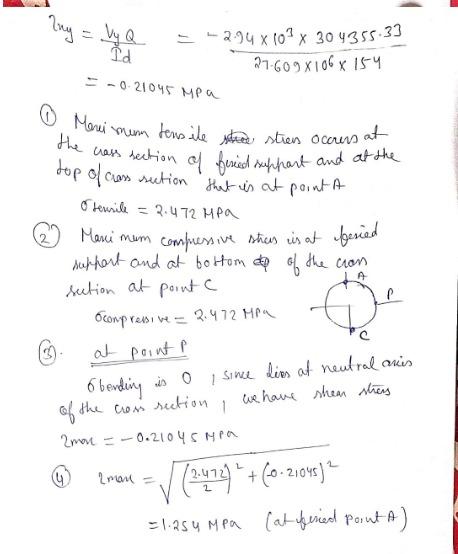 τxy = VyQ / Id = -2.94 x 10³ x 304355.33 / 27.609 x 10⁶ x 154
= -0.21045 MPa
① Maximum tensile stress occurs at
the cross section of fixed support and at the
top of cross section that is at point A
σ tensile = 2.472 MPa
② Maximum compressive stress is at fixed
support and at bottom of the cross
section at point C
σcompressive = 2.472 MPa
A
P
C
③. at point P
σ bending is 0, since lies at neutral axis
of the cross section, we have shear stress
τmax = -0.21045 MPa
④ τmax = √((2.472/2)² + (-0.21045)²
= 1.254 MPa (at fixed point A)